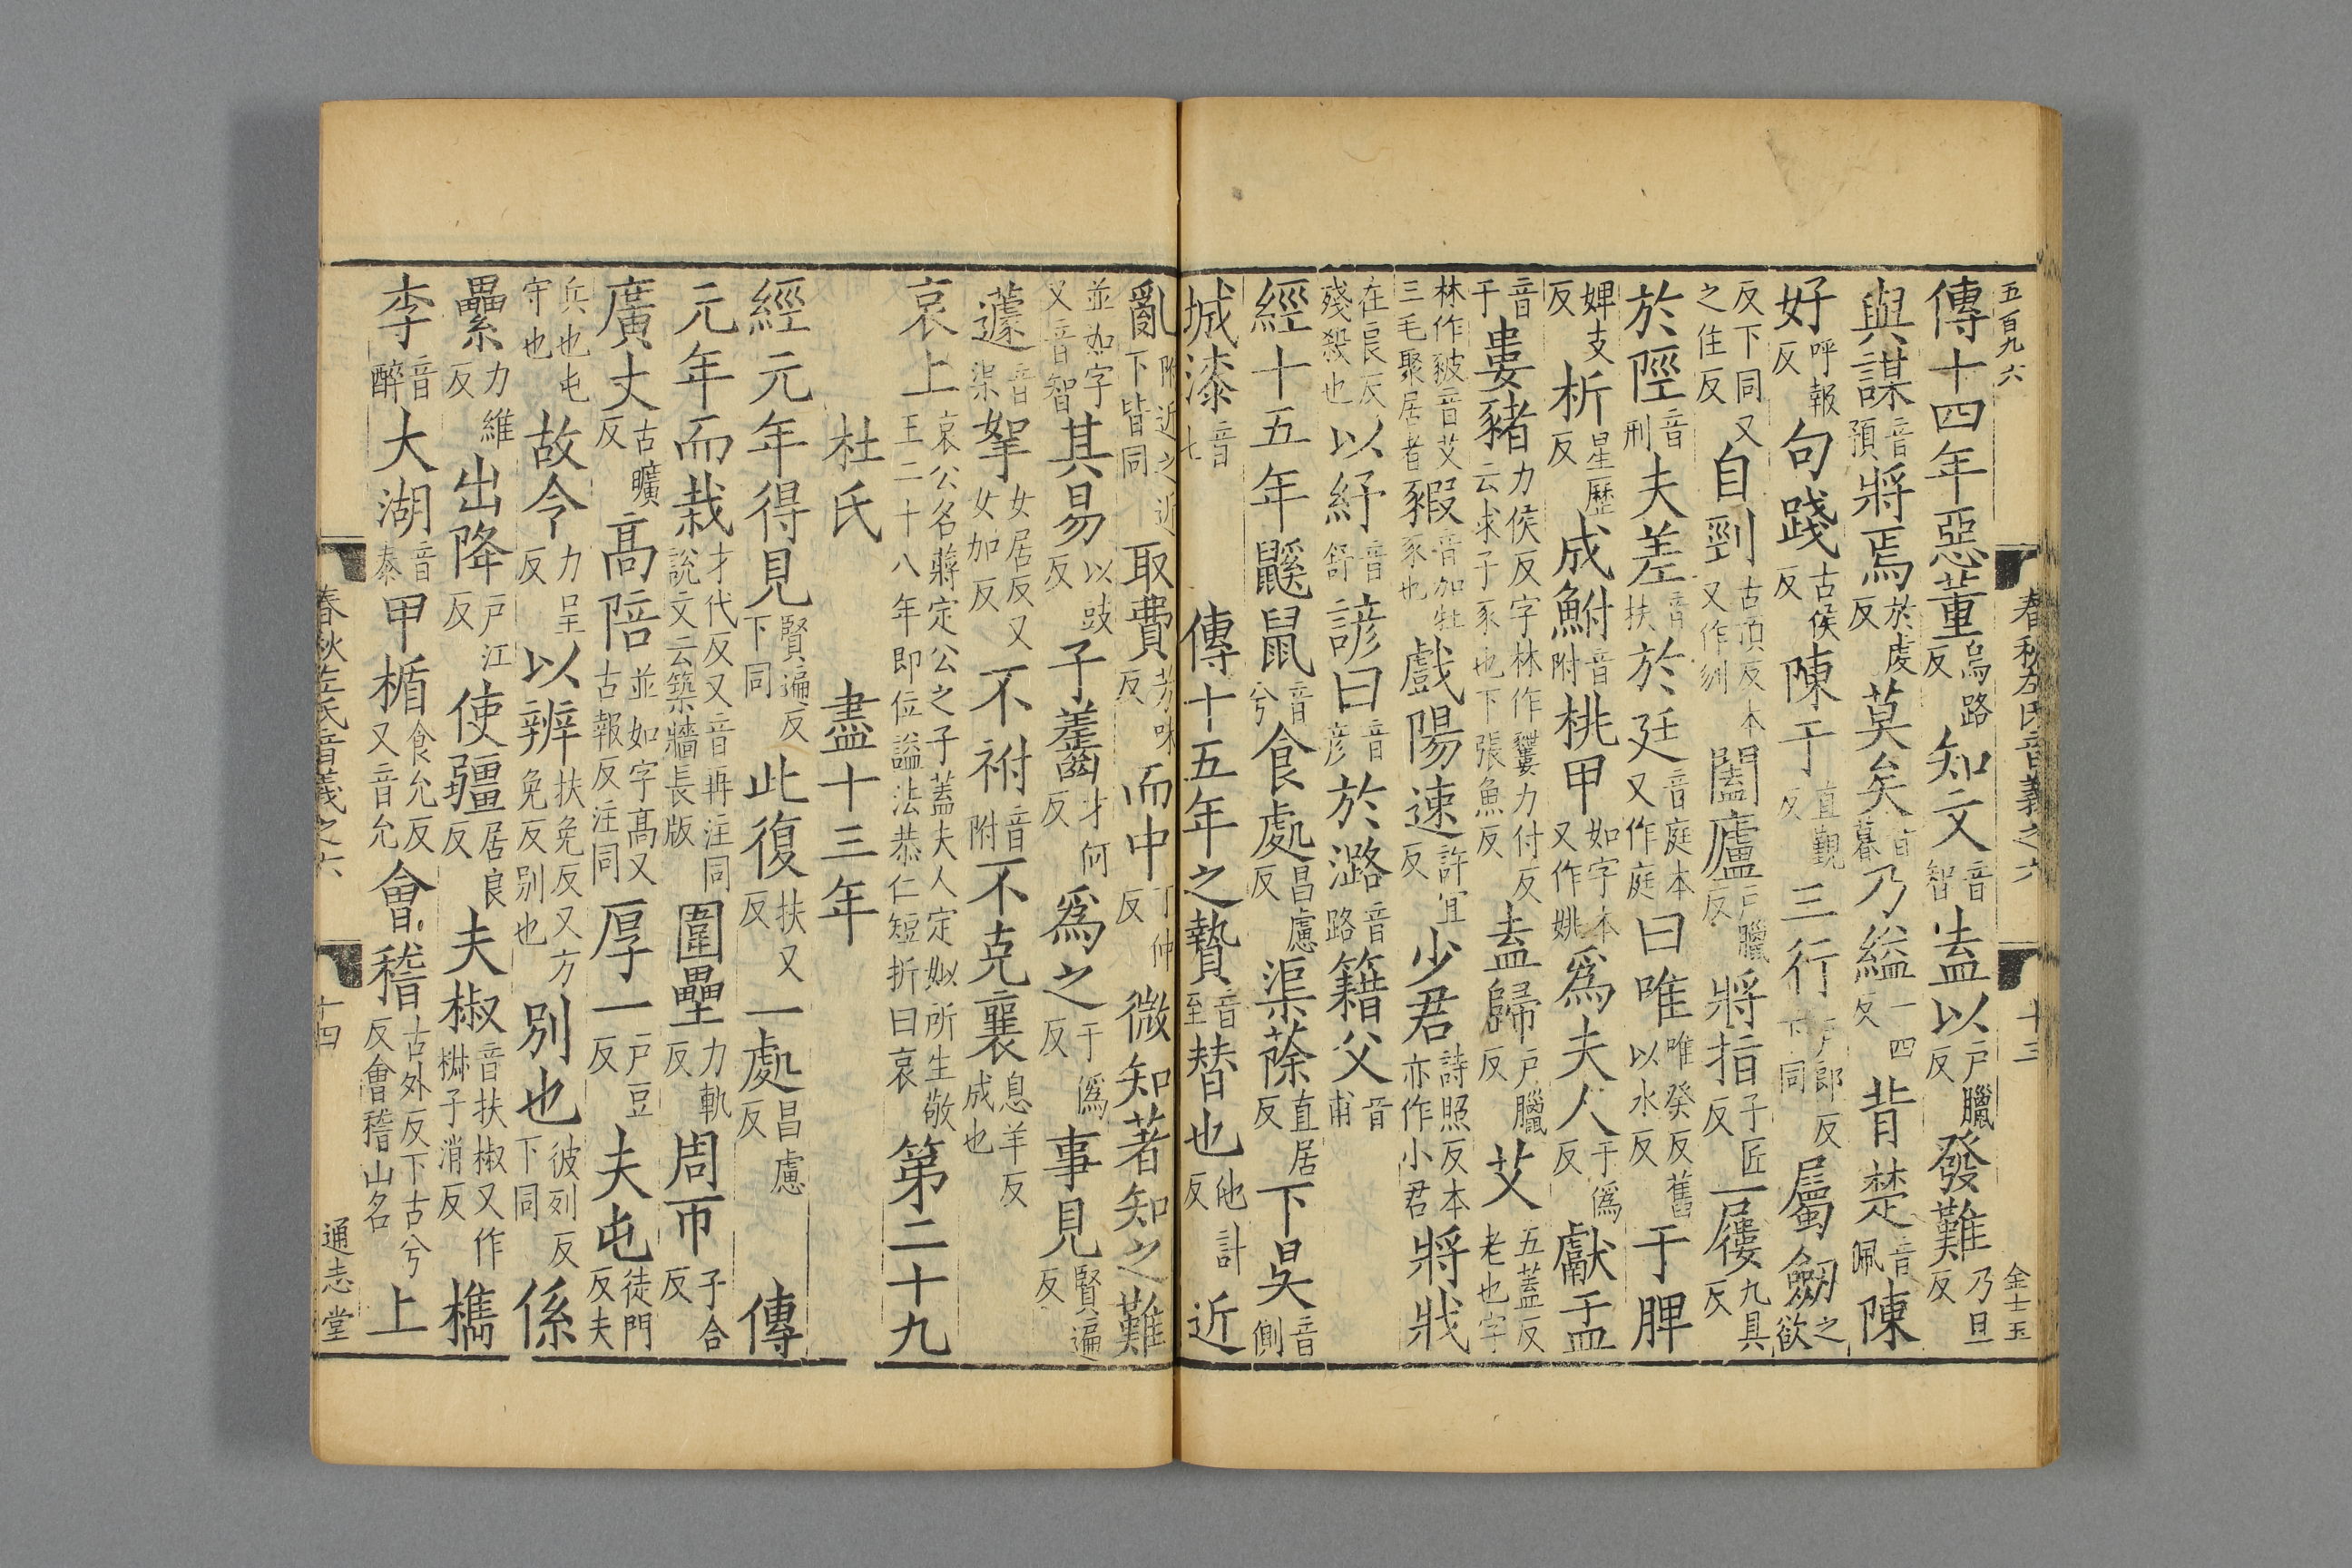 五百九六
春秋左氏音義之六 十三
金士玉
傳十四年惡董烏路反知文音智盍以戶臘反發難乃旦反
與謀音預將焉於虔反莫矣音暮乃縊一四反背楚音佩陳
好呼報反句踐古侯反陳于直覲反三行戶郎反下同屬劒之欲
反下同又之住反自剄古頂反本又作刎闔廬戶臘反將指子匠反一屨九具反
於陘音刑夫差音扶於廷音庭本又作庭曰唯唯癸反舊以水反于脾
婢支反析星歷反成鮒音附桃甲如字本又作姚爲夫人于僞反獻盂
音于婁豬力侯反字林作𧱚力付反云求子豕也下張魚反盍歸戶臘反艾五蓋反老也字
林作䝅音艾三毛聚居者豭音加牡豕也戲陽速許宜反少君詩照反本亦作小君將戕
在良反殘殺也以紓音舒諺曰音彦於潞音路籍父音甫
經十五年鼷鼠音兮食處昌慮反渠蒢直居反下昃音側
城漆音七傳十五年之贄音至替也他計反近
亂附近之近下皆同取費芳味反而中丁仲反微知著知之難
並如字又音智其易以豉反子齹才何反爲之于僞反事見賢遍反
蘧音渠挐女居反又女加反不祔音附不克襄息羊反成也
哀上哀公名蔣定公之子蓋夫人定姒所生敬王二十八年即位謚法恭仁短折曰哀第二十九
杜氏 盡十三年
經元年得見賢遍反下同此復扶又反一處昌慮反傳
元年而栽才代反又音再注同說文云築牆長版圍壘力軌反周帀子合反
廣丈古曠反高陪並如字高又古報反注同厚一戶豆反夫屯徒門反夫
兵也屯守也故令力呈反以辨扶免反又方免反别也別也彼列反下同係
纍力維反出降戶江反使疆居良反夫椒音扶椒又作椕子消反檇
李音醉大湖音泰甲楯食允反又音允會稽古外反下古兮反會稽山名上
春秋左氏音義之六 十四
通志堂